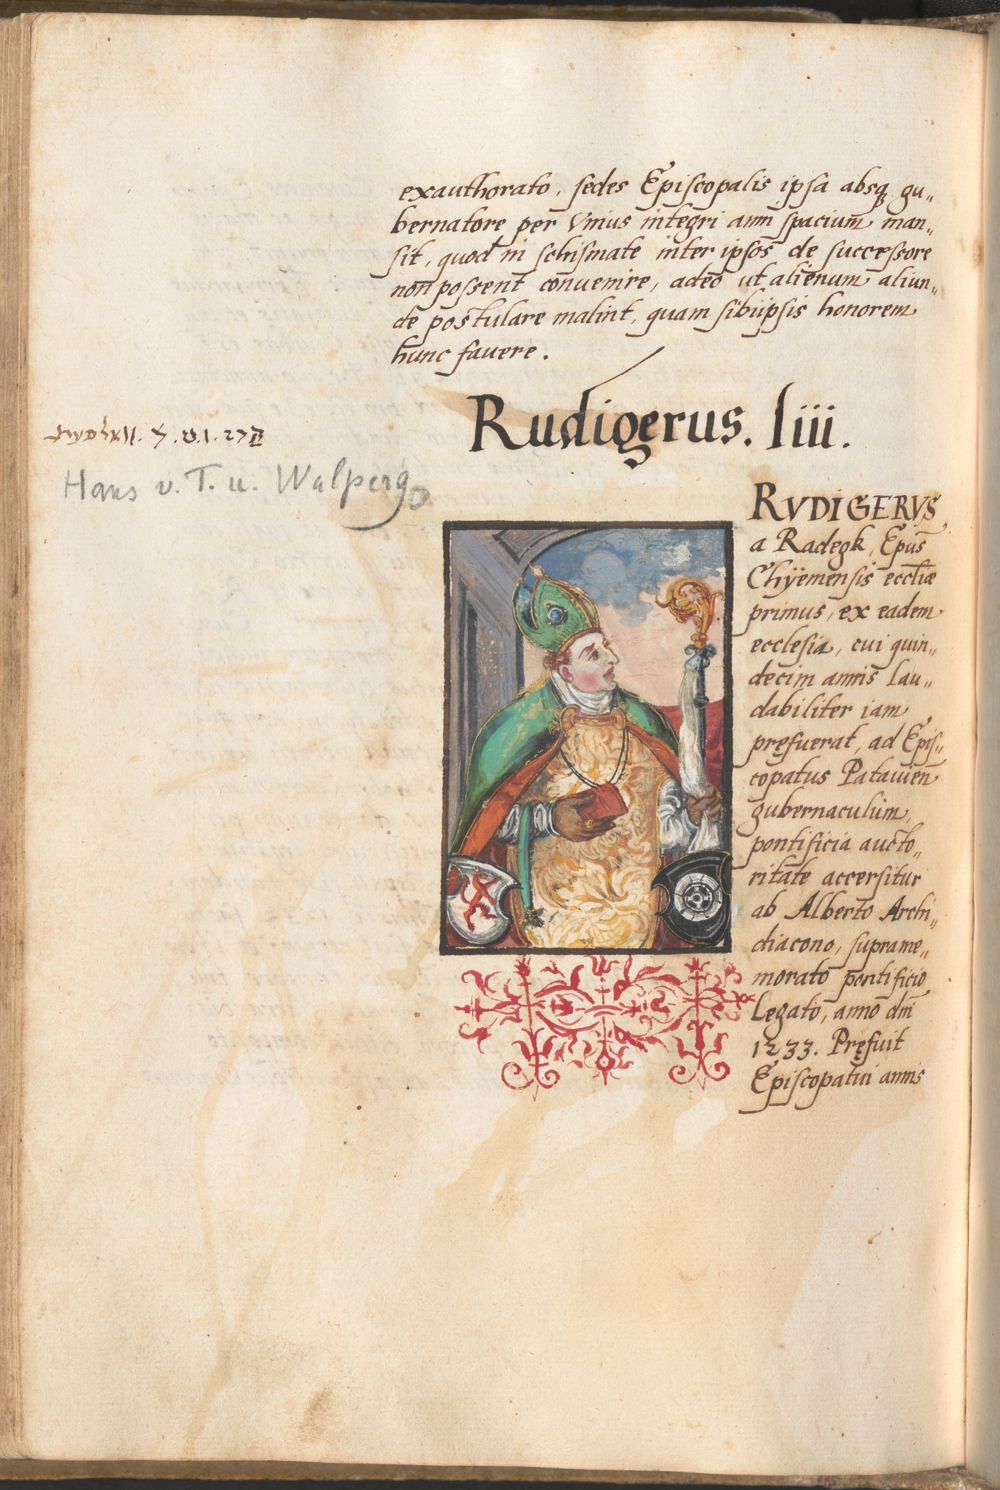 exauthorato, sedes Episcopalis ipsa absq gu„
bernatore per Vnius integri anni spacium man„
sit, quod in schismate inter ipsos de successore
non possent conuenire, adeo ut alienum aliun„
de postulare malint, quam sibiipsis honorem
hunc fauere.
Rudigerus. liii.
Hans v. T. u. Walperg
RVDIGERVS
a Radegk, Epūs
Chÿemensis ecclīæ
primus, ex eadem
ecclesia, cui quin„
decim annis lau„
dabiliter iam
pręfuerat, ad Epis„
copatus Patauien
gubernaculum,
pontificia aucto„
ritate accersitur
ab Alberto Archi„
diacono, supra me„
morato pontificio
Legato, anno dm̄
1233. Pręfuit
Episcopatui annis